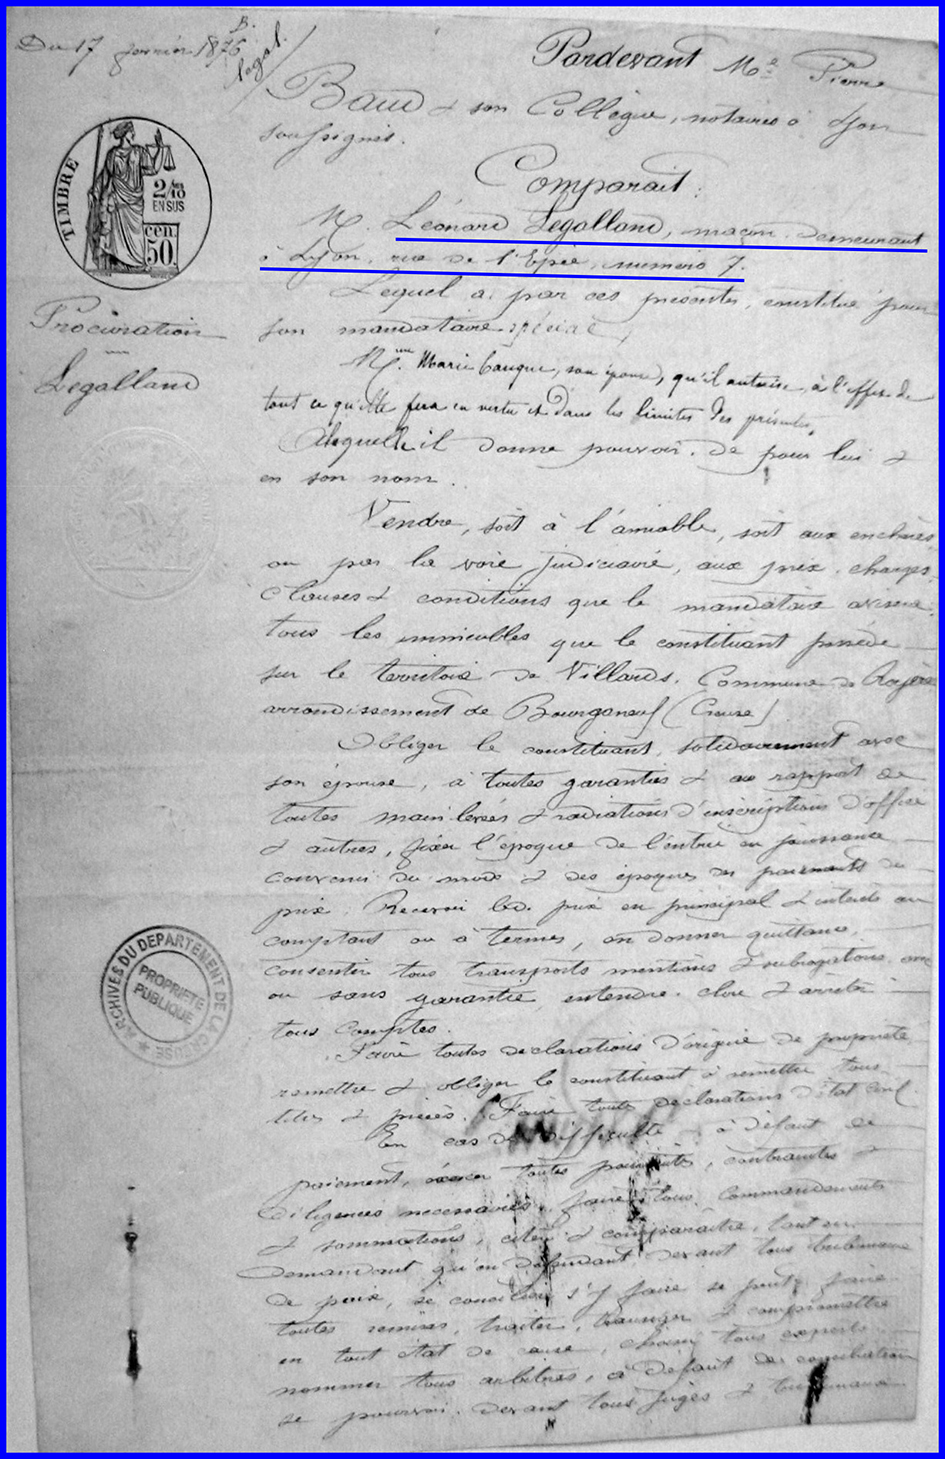 Du 17 janvier 1876
B.
légal.
Pardevant Me Pierre
Baud & son Collègue, notaires à Lyon
soussignés.
Comparait:
TIMBRE
2/10
EN SUS
cen.
50.
M. Léonard Legalland, maçon demeurant
à Lyon, rue de l'Epée, numéro 7.
Lequel a, par ces présentes, constitué pour
son mandataire spécial,
Procuration
Legalland
Marie Cauque, son épouse, qu'il autorise à l'effet de
tout ce qu'elle fera en vertu et dans les limites des présentes,
à laquelle il donne pouvoir de pour lui &
en son nom.
Vendre, soit à l'amiable, soit aux enchères
ou par la voie judiciaire, aux prix, charges
clauses & conditions que le mandataire avisera
tous les immeubles que le constituant possède
sur le territoire de Villards, Commune de Royère
arrondissement de Bourganeuf (Creuse)
Obliger le constituant, solidairement avec
son épouse, à toutes garanties & au rapport de
toutes main levées & radiations d'inscriptions d'office
& autres, fixer l'époque de l'entrée en jouissance
convenir du mode & des époques des paiements du
prix. Recevoir led. prix en principal & intérêts au
comptant ou à termes, en donner quittance,
consentir tous transports mentions & subrogations avec
ou sans garantie, entendre, clore & arrêter
tous comptes.
ARCHIVES DU DEPARTEMENT DE LA CREUSE
PROPRIETE
PUBLIQUE
Faire toutes declarations d'origine de propriété,
remettre & obliger le constituant à remettre tous
titres & pièces. Faire toutes declarations d'état civil.
En cas de difficulté & à défaut de
paiement, exercer toutes poursuites, contraintes &
diligences nécessaires, faire tous commandements
& sommations, citer & comparaître, tant en
demandant qu'en défendant, devant tous tribunaux
de paix, se concilier s'y faire se peut, faire
toutes remises, traiter, transiger & compromettre
en tout état de cause, choisir tous experts
nommer tous arbitres, à défaut de conciliation
se pourvoir devant tous juges & tribunaux